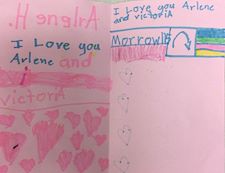 Arlene H.
I Love you
Arlene and
victoriA
I Love you Arlene
and victoriA
Morrow